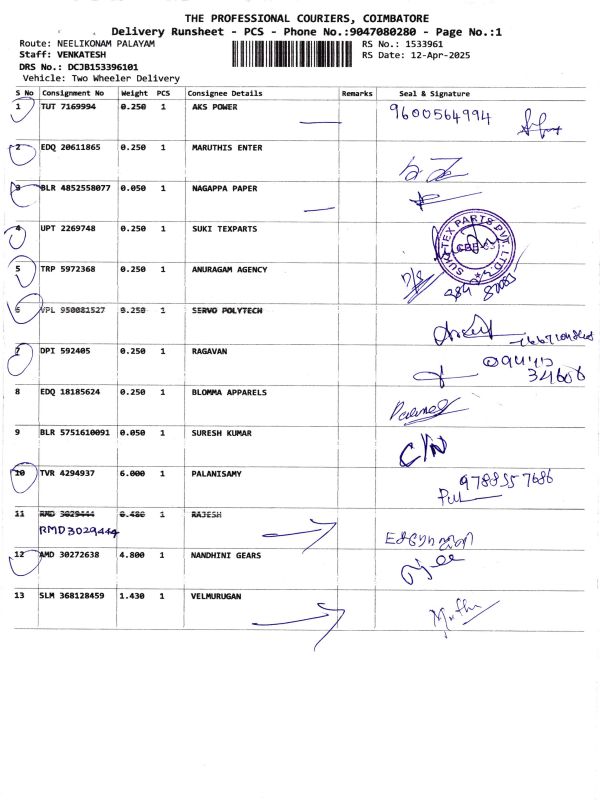 THE PROFESSIONAL COURIERS, COIMBATORE
Delivery Runsheet - PCS - Phone No.:9047080280 - Page No.:1
Route: NEELIKONAM PALAYAM RS No.: 1533961
Staff: VENKATESH RS Date: 12-Apr-2025
DRS No.: DCJB153396101
Vehicle: Two Wheeler Delivery
S No Consignment No Weight PCS Consignee Details Remarks Seal & Signature
1 TUT 7169994 0.250 1 AKS POWER 9600564994
2 EDQ 20611865 0.250 1 MARUTHIS ENTER
3 BLR 4852558077 0.050 1 NAGAPPA PAPER
4 UPT 2269748 0.250 1 SUKI TEXPARTS
SUKI TEX PARTS PVT. LTD.
5 TRP 5972368 0.250 1 ANURAGAM AGENCY
6 VPL 950081527 0.250 1 SERVO POLYTECH
7 DPI 592405 0.250 1 RAGAVAN
34606
8 EDQ 18185624 0.250 1 BLOMMA APPARELS
9 BLR 5751610091 0.050 1 SURESH KUMAR C/N
10 TVR 4294937 6.000 1 PALANISAMY 9788557686
11 RMD 3029444 0.480 1 RAJESH
RMD3029444
12 AMD 30272638 4.800 1 NANDHINI GEARS
13 SLM 368128459 1.430 1 VELMURUGAN Muthu